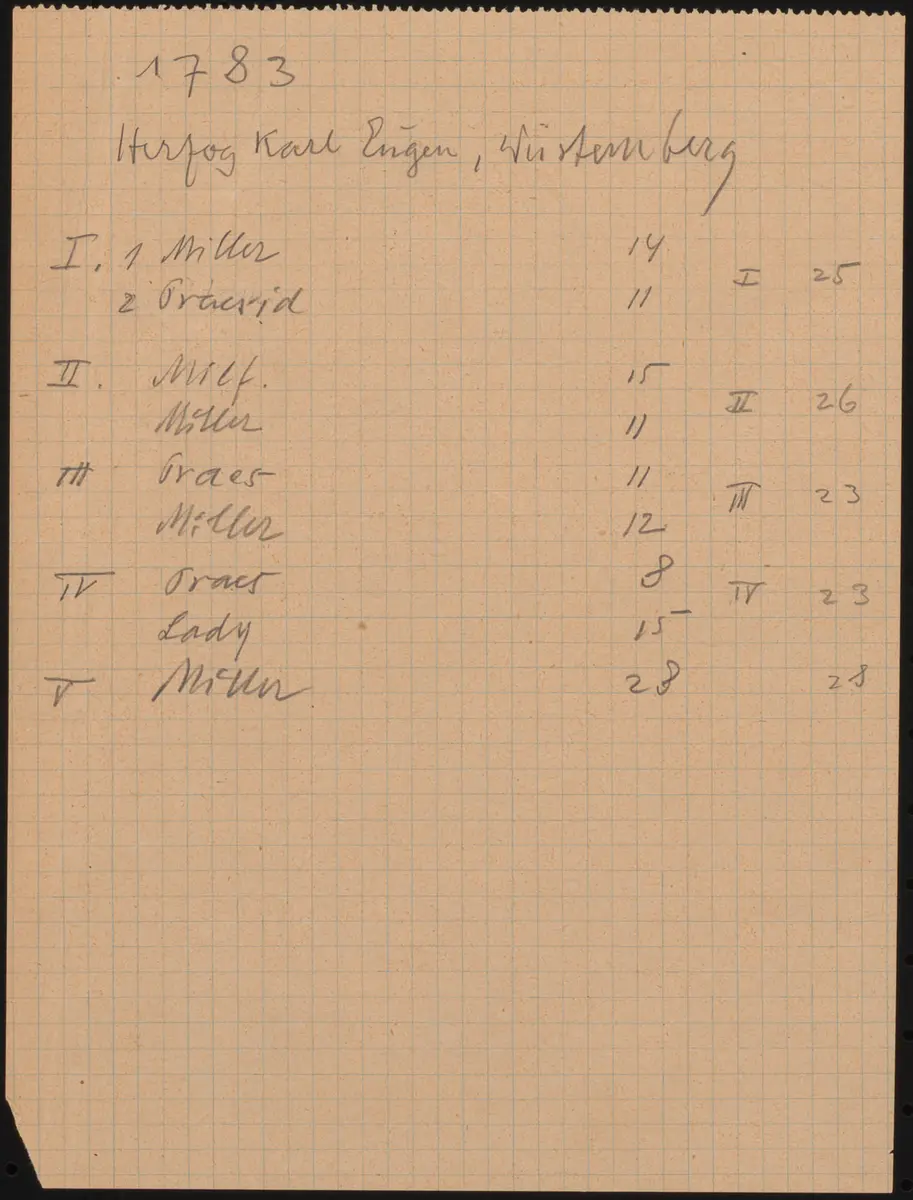 1783
Herzog Karl Eugen, Württemberg
I. 1 Miller 14
I 25
2 Praesid 11
II. Milf. 15
II 26
Miller 11
III Praes 11
III 23
Miller 12
IV Praes 8
IV 23
Lady 15
V Miller 28 28